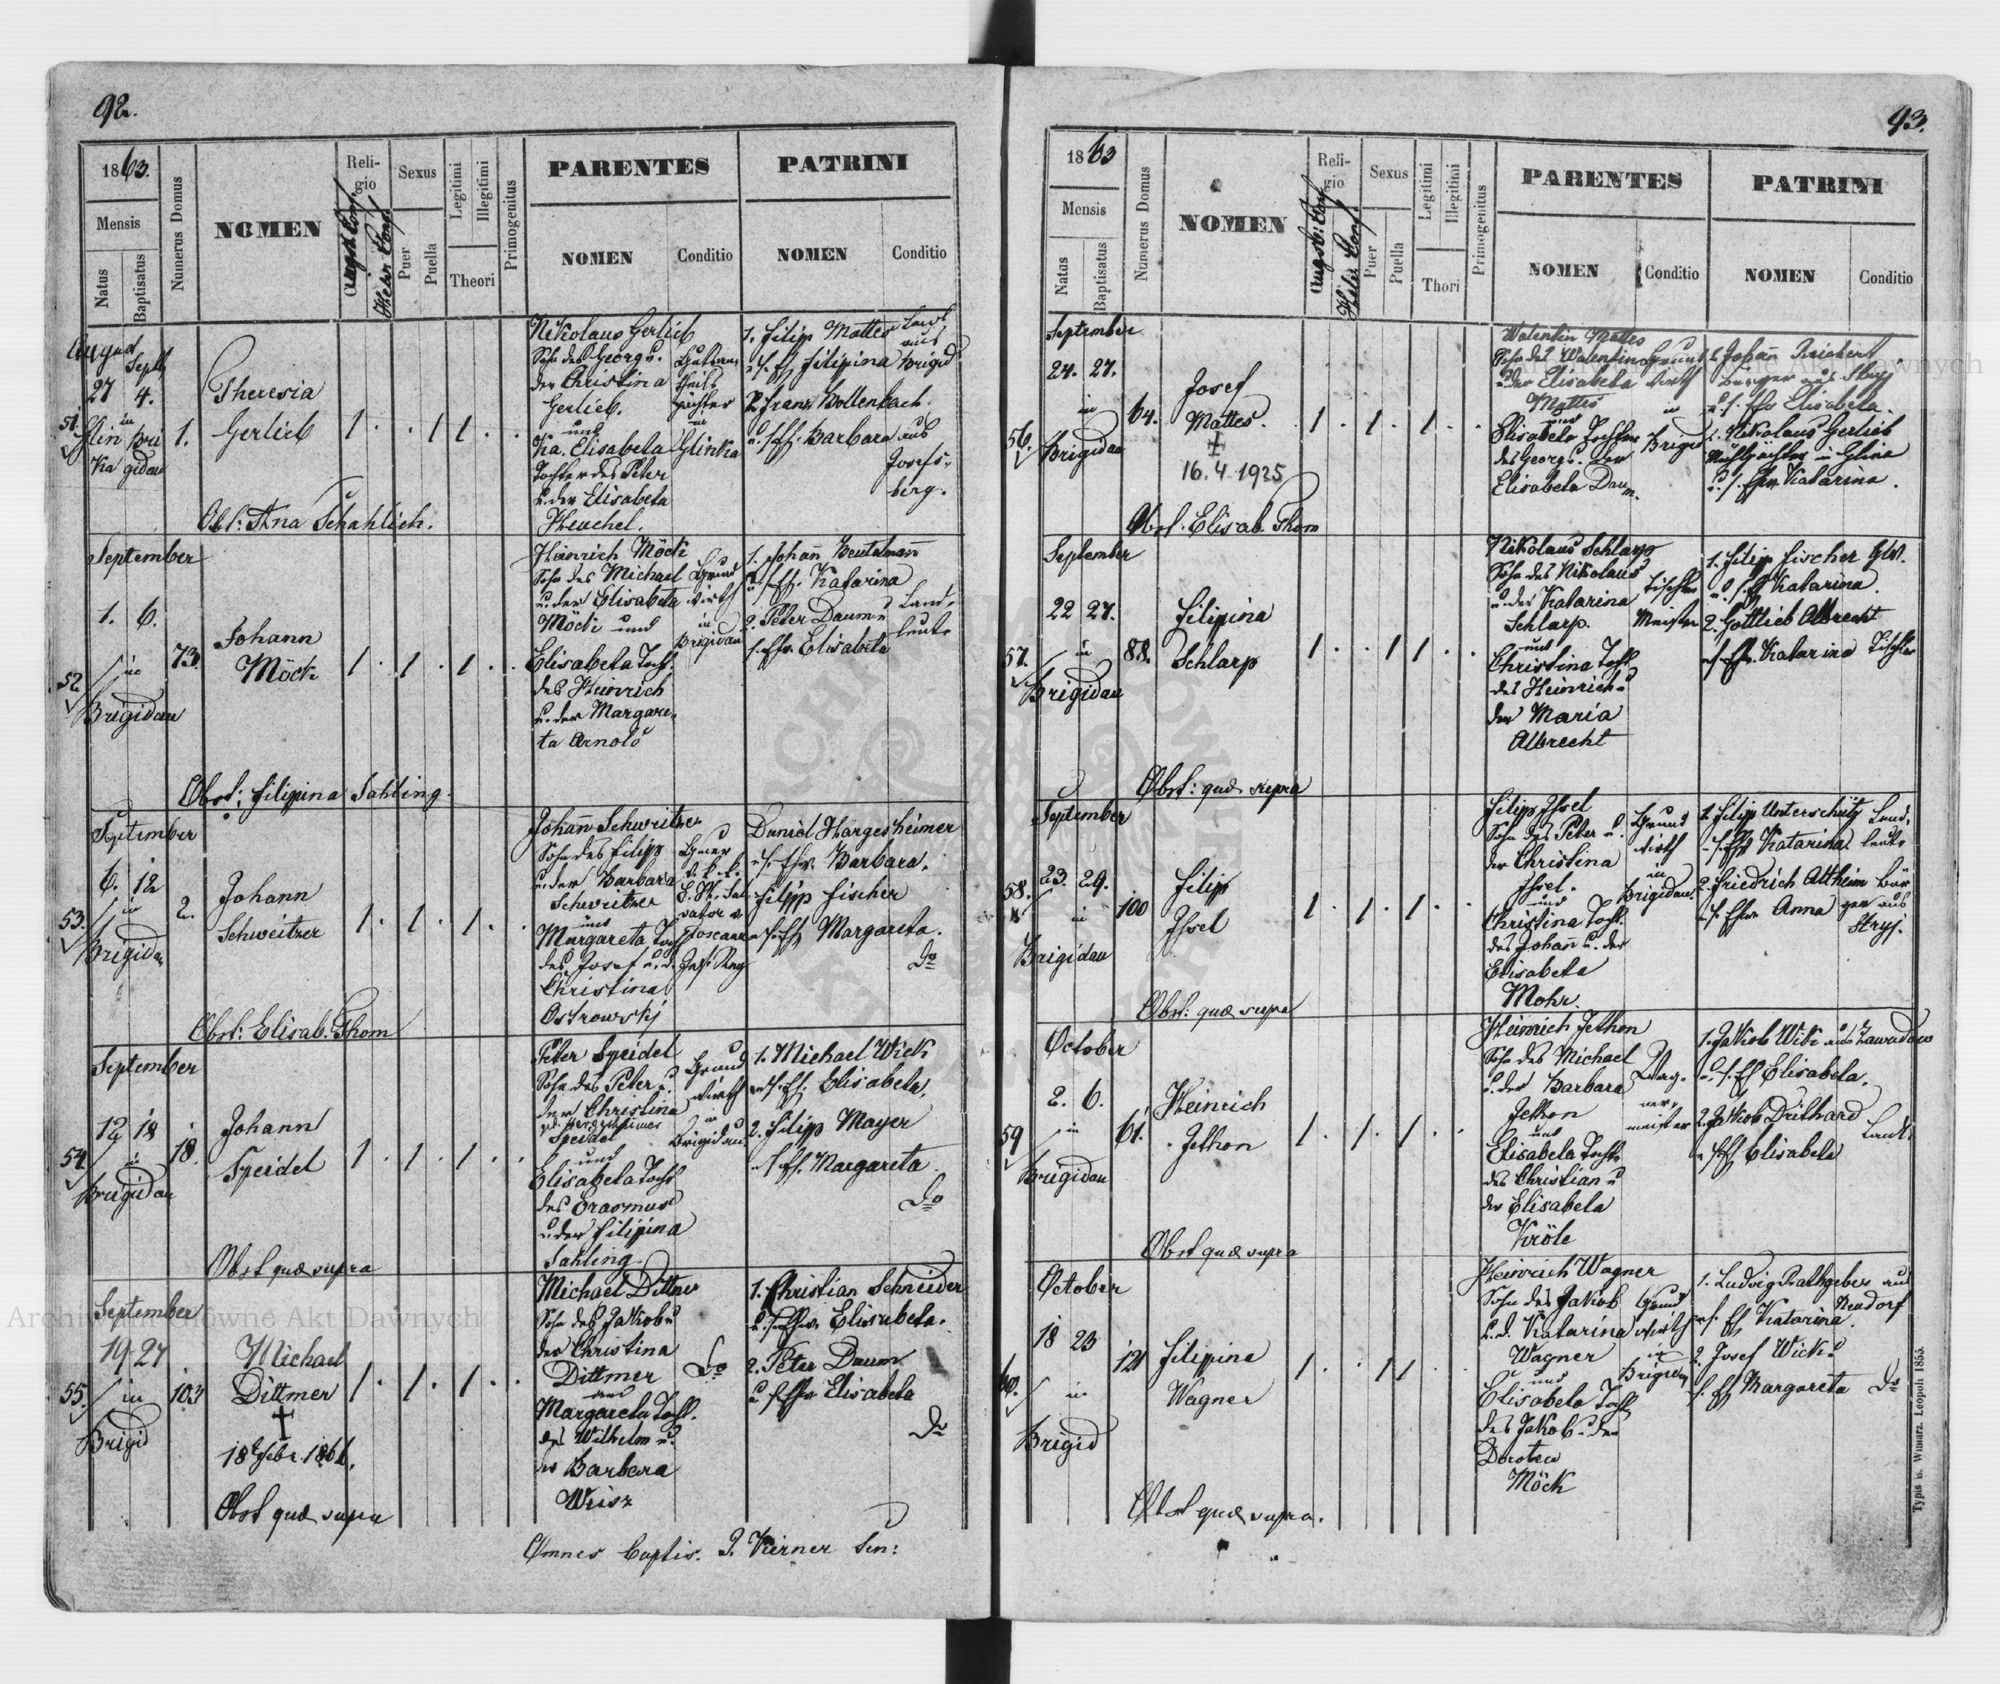 92.
1863.
Mensis
Natus
Baptisatus
Numerus Domus
NOMEN
Religio
Augsb. Conf.
Helv. Conf.
Sexus
Puer
Puella
Legitimi
Illegitimi
Theori
Primogenitus
PARENTES
NOMEN
Conditio
PATRINI
NOMEN
Conditio
August
Septb
27 4.
in
51.
Glin Bri
ka gidau
1.
Theresia
Gerlieb
1 . . 1 1 . .
Nikolaus Gerlieb
Sohn des Georg u.
der Christina
Gerlieb.
und
Ka. Elisabeta
Tochter des Peter
u. der Elisabeta
Heuchel.
pächter
in
Glinka
1. Filip Mattes
u. s. Eh. Filipina
2. Franz Bollenbach.
u. s. Eh. Barbara aus
Josefs-
berg.
Obst: Ana Schahlich.
September
1. 6.
52
in
Brigidau
73.
Johann
Möck
1 . 1 . 1 . .
Heinrich Möck
Sohn des Michael
u. der Elisabeta
Möck und
Elisabeta Toch.
des Heinrich
u. der Margare-
ta Arnold
Grund
wirth
in
Brigidau
1. Johann Beutelmann
u. s. Eh. Katarina
2. Peter Daum u
s. Ehw. Elisabeta
Land-
leute
Obst: Filipina Sahling.
September
6. 12
in
53.
Brigidau
2.
Johann
Schweitzer
1 . 1 . 1 . .
Johann Schweitzer
Sohn des Filipp
u. der Barbara
Schweitzer
und
Margareta Toch
des Josef u. d.
Christina
Ostrowskj
Daniel Hargesheimer
u. s. Ehw. Barbara.
Filipp Fischer
u. s. Eh. Margareta.
Do
Obst: Elisab. Thom
September
12 18
in
54.
Brigidau
18.
Johann
Speidel
1 . 1 . 1 . .
Peter Speidel
Sohn des Peter u.
der Christina
Speidel
und
Elisabeta Toch
des Erasmus
u. der Filipina
Sahling.
Grund
wirth
in
Brigidau.
1. Michael Wick
u. s. Eh. Elisabeta.
2. Filipp Mayer
u. s. Eh. Margareta.
Do
Obst quæ supra
September
19. 27
in
55.
Brigid
103
Michael
Dittmer
1 . 1 . 1 . .
†
18 Febr. 1866.
Michael Dittmer
Sohn des Jakob u
der Christina
Dittmer
und
Margareta Toch.
des Wilhelm u.
der Barbara
Weisz
Do
1. Christian Schneider
u. s. Ehw. Elisabeta.
2. Peter Daum
u. s. Ehw. Elisabeta
Do
Obst quæ supra
Omnes baptis. J. Kierner Sen:
93.
1863
Mensis
Natus
Baptisatus
Numerus Domus
NOMEN
Religio
Augsb. Conf
Helv. Conf.
Sexus
Puer
Puella
Legitimi
Illegitimi
Thori
Primogenitus
PARENTES
NOMEN
Conditio
PATRINI
NOMEN
Conditio
September
24. 27.
in
56.
Brigidau
64.
Josef
Mattes.
†
16. 4. 1925
1 . 1 . 1 . .
Walentin Mattes
Sohn des Walentin
u. der Elisabeta
Mattes
und
Elisabeta Tochter
des Georg u. der
Elisabeta Daum.
Grund
wirth
in
Brigid
1. Johann Reichert
Bürger aus Stryj
u. s. Ehw Elisabeta.
2. Nikolaus Gerlieb
u. s. Ehw Katarina.
Obst. Elisab. Thom
September
22 27.
in
57.
Brigidau
88.
Filipina
Schlarp
1 . . 1 1 . .
Nikolaus Schlarp
Sohn des Nikolaus
u. der Katarina
Schlarp.
und
Christina Toch
des Heinrich u
der Maria
Albrecht
Tischler
Meister
1. Filip Fischer GW.
u. s. Eh. Katarina.
2. Gottlieb Albrecht
u. s. Ehw. Katarina Tischler
Obst: quæ supra
September
23. 29.
58.
in
Brigidau
100
Filipp
Ihsel
1 . 1 . 1 . .
Filipp Ihsel
Sohn des Peter u.
der Christina
Ihsel.
und
Christina Toch.
des Johann u. der
Elisabeta
Mohr.
Grund
wirth
in
Brigidau.
1. Filip Unterschütz
u. s. Ehw Katarina
Land-
leute
2. Friedrich Altheim Bür-
u. s. Ehw. Anna ger aus
Stryj.
Obst: quæ supra
October
2. 6.
in
59
Brigidau
61.
Heinrich
Jethon
1 . 1 . 1 . .
Heinrich Jethon
Sohn des Michael
u. der Barbara
Jethon
und
Elisabeta Tocht.
des Christian u
der Elisabeta
Kröle
Wag-
ner-
meister
1. Jakob Wik aus Zawadow
u. s. Eh Elisabeta.
2. Jakob Drilhard
u. s. Eh Elisabeta
Landl.
Obst quæ supra
October
18 23
in
60.
Brigid
121
Filipina
Wagner
1 . . 1 1 . .
Heinrich Wagner
Sohn des Jakob
u. d. Katarina
Wagner
und
Elisabeta Toch
des Jakob u. der
Dorotea
Möck
Grund
wirth
in
Brigidau
1. Ludwig Rathgeber aus
Neudorf
u. s. Eh Katarina.
2. Josef Wick u
s. Eh Margareta Do
Obst quæ supra.
Typis B. Winiarz Leopoli 1855.
Archiwum Główne Akt Dawnych
Archiwum Główne Akt Dawnych